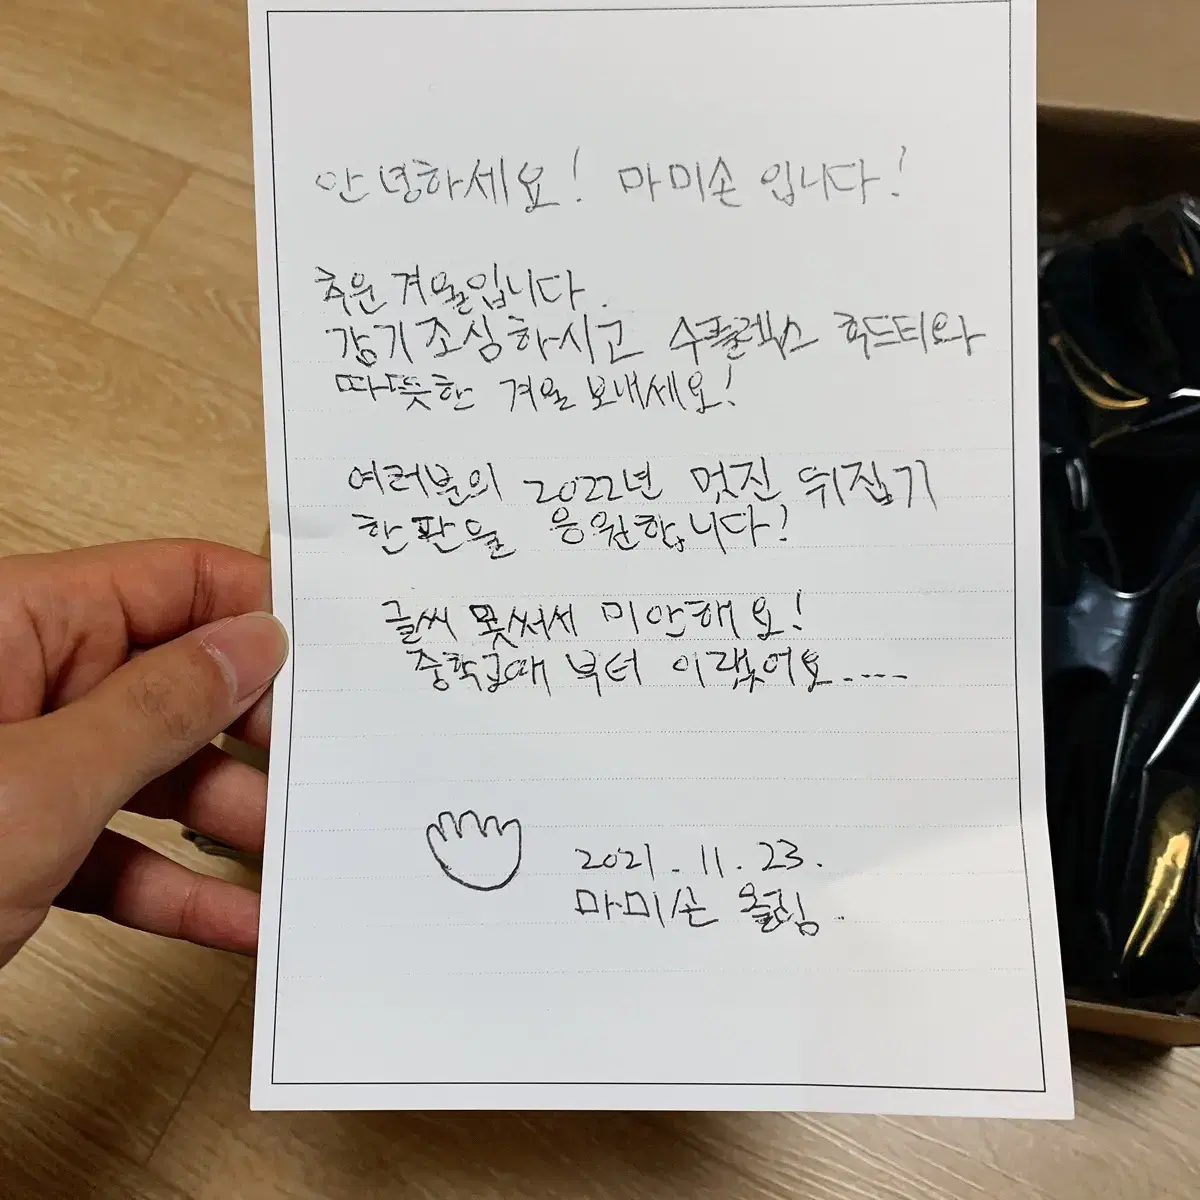 안녕하세요! 마미손 입니다!
추운 겨울입니다.
감기조심하시고 수플렉스 후드티와
따뜻한 겨울 보내세요!
여러분의 2022년 멋진 뒤집기
한판을 응원합니다!
글씨 못써서 미안해요!
중학교때 부터 이랬어요....
2021. 11. 23.
마미손 올림.